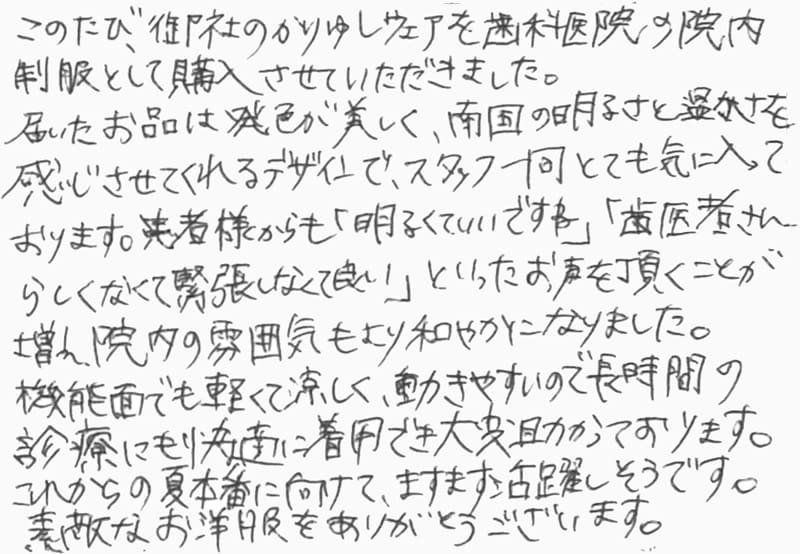 このたび、御社のかりゆしウェアを歯科医院の院内
制服として購入させていただきました。
届いたお品は発色が美しく、南国の明るさと温かさを
感じさせてくれるデザインで、スタッフ一同とても気に入って
おります。患者様からも「明るくていいですね」「歯医者さん
らしくなくて緊張しなくて良い!」といったお声を頂くことが
増え、院内の雰囲気もより和やかになりました。
機能面でも軽くて涼しく、動きやすいので長時間の
診療にもり快適に着用でき大変助かっております。
これからの夏本番に向けて、ますます活躍しそうです。
素敵なお洋服をありがとうございます。